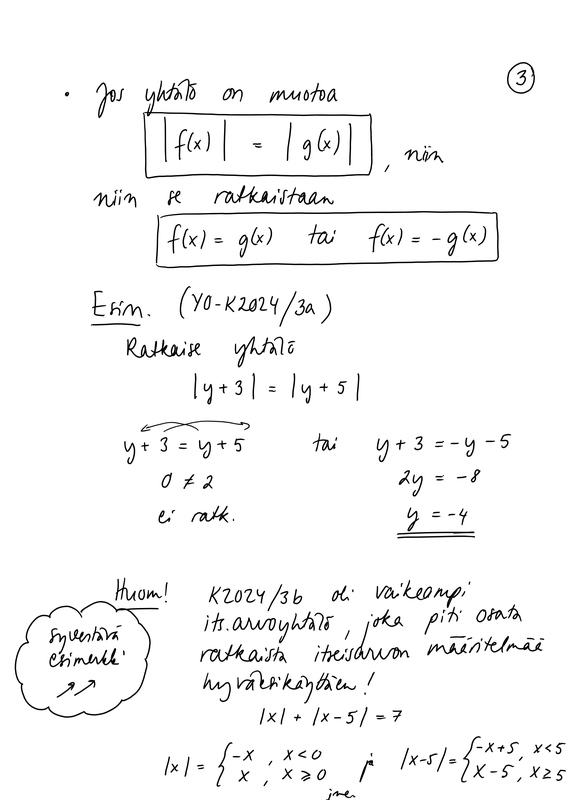 3
• Jos yhtälö on muotoa
|f(x)| = |g(x)| , niin
niin se ratkaistaan
f(x) = g(x) tai f(x) = -g(x)
Esim. (YO-K2024/3a)
Ratkaise yhtälö
|y+3| = |y+5|
y+3 = y+5 tai y+3 = -y-5
0 ≠ 2 2y = -8
ei ratk. y = -4
Huom! K2024/3b oli vaikeampi
its.arvoyhtälö, joka piti osata
ratkaista itseisarvon määritelmää
hyväksikäyttäen!
syventävä
esimerkki
|x| + |x-5| = 7
|x| = { -x , x<0 ja |x-5| = { -x+5, x<5
x , x≥0 x-5, x≥5
jne.